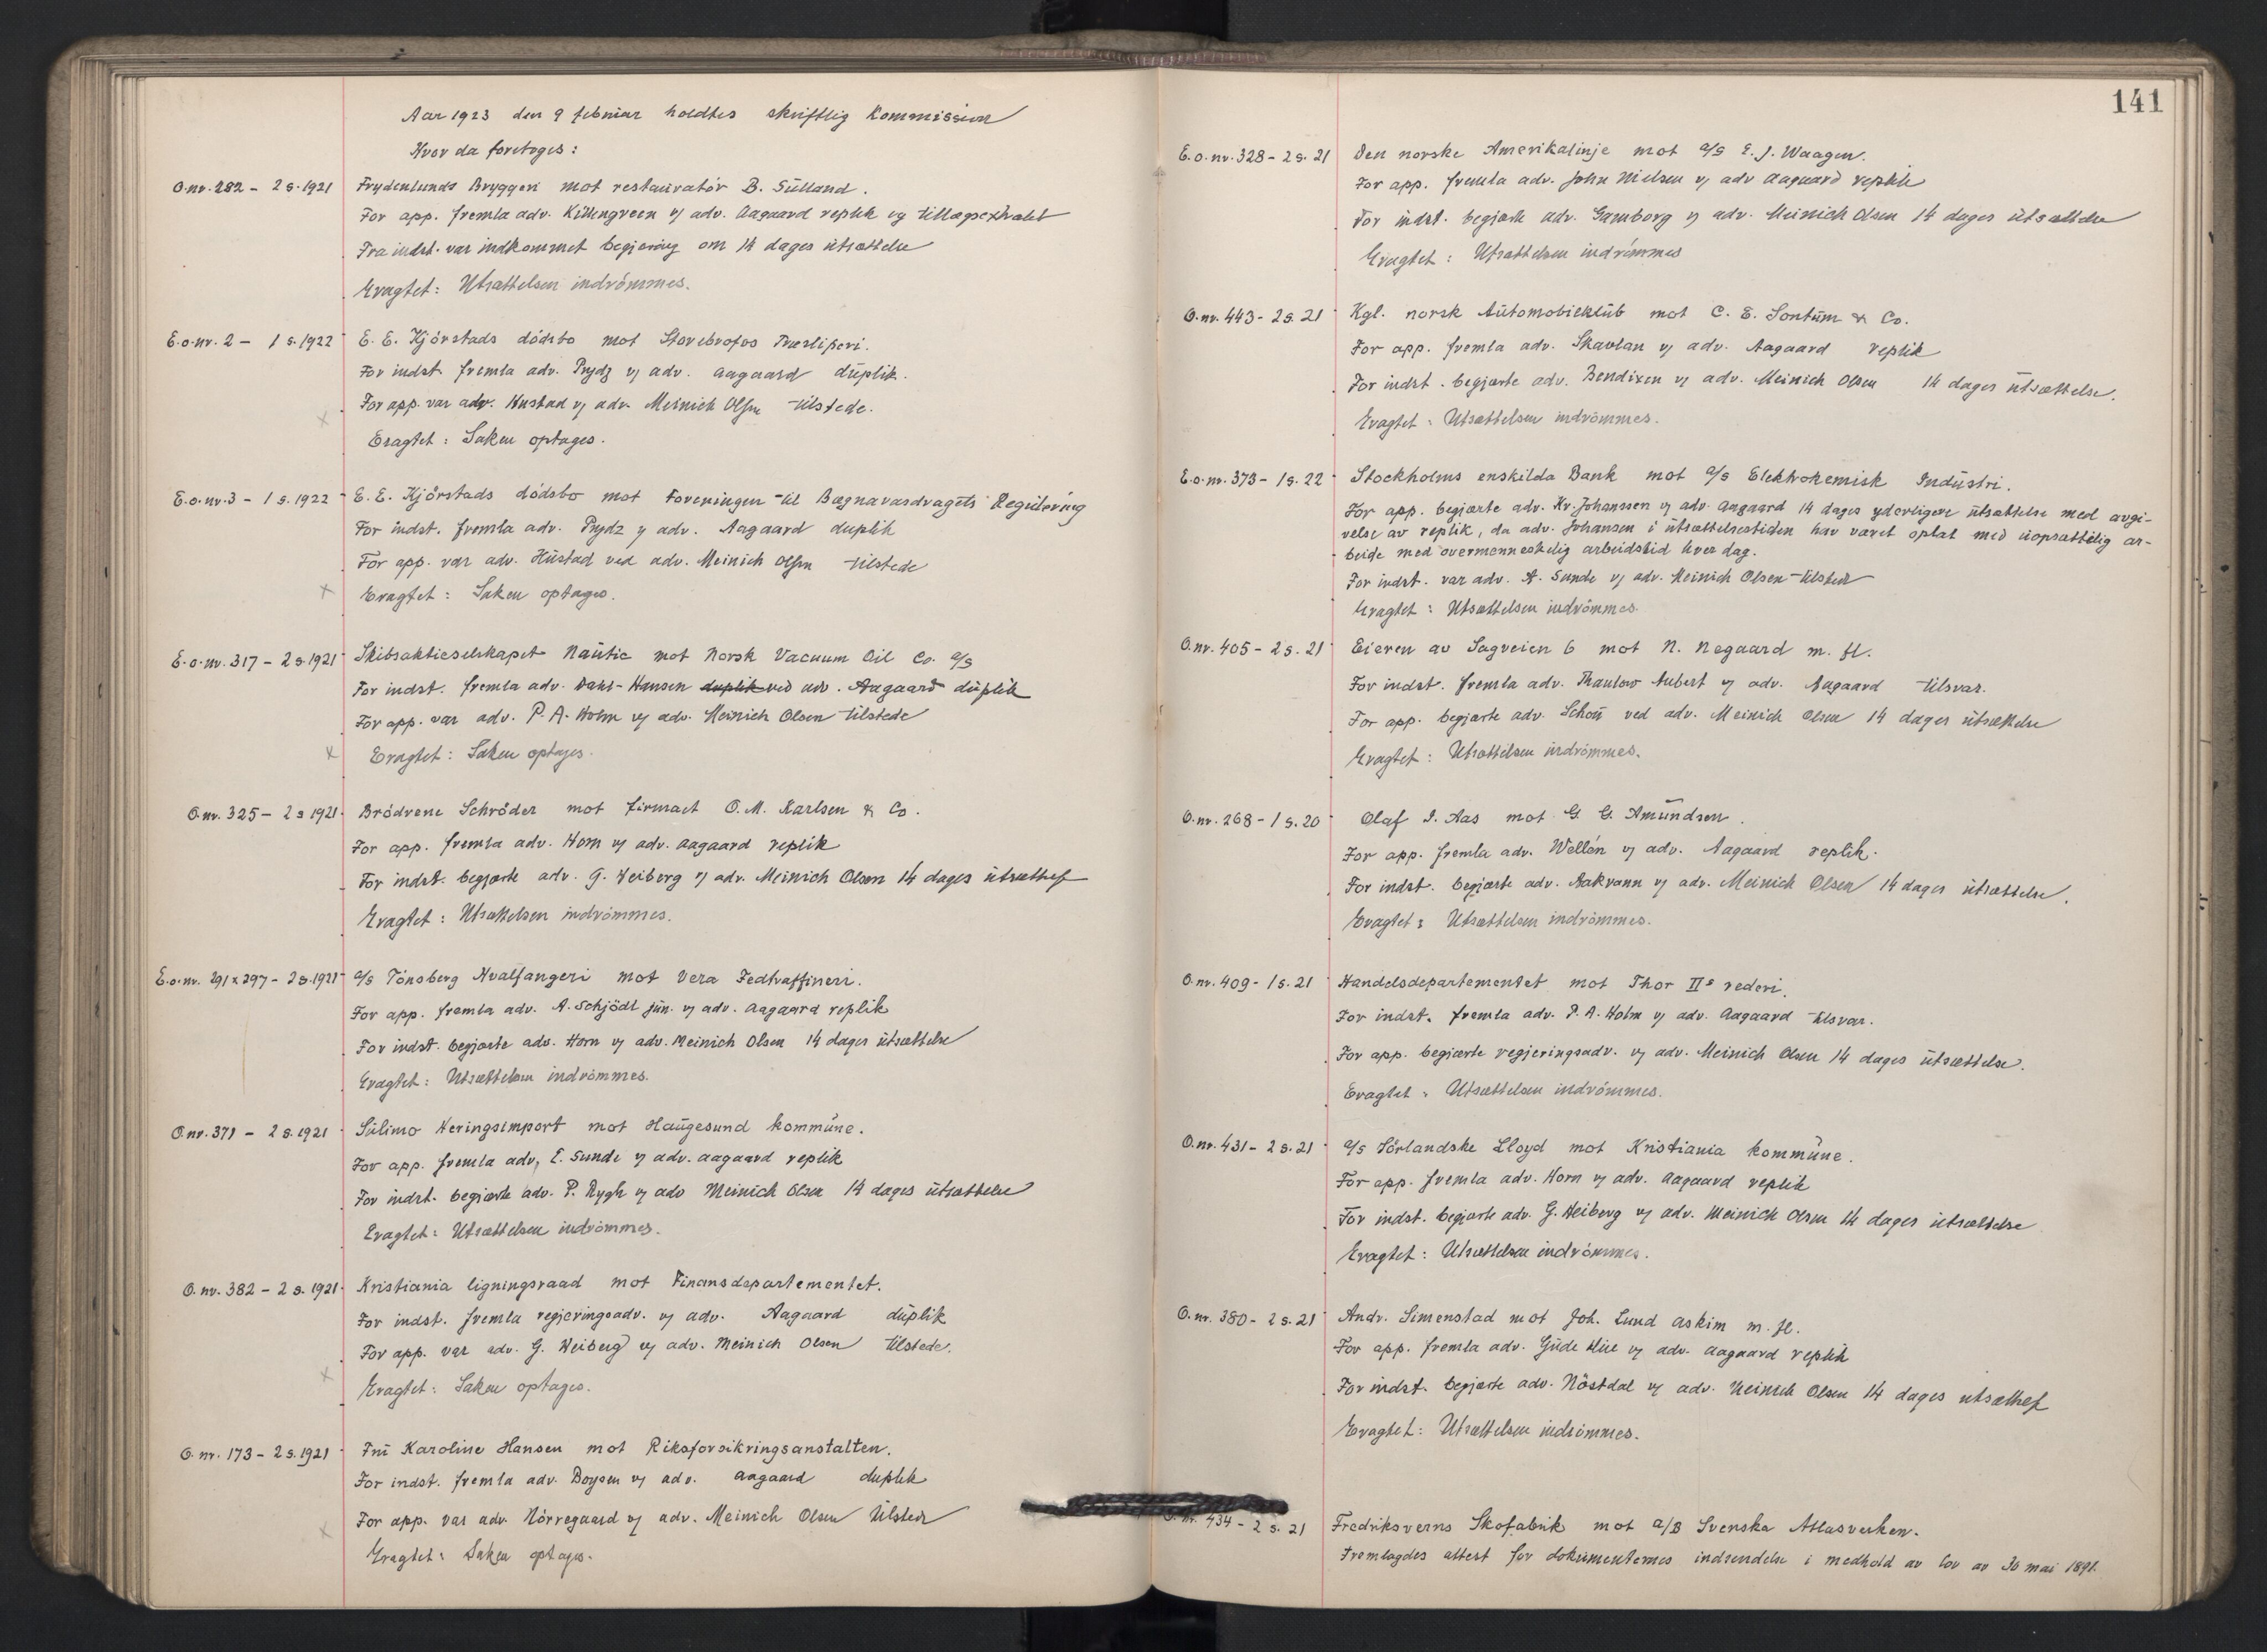 Aar 1923 den 9 februar holdtes skriftlig Kommission
Hvor da foretoges:
O.nr. 282 – 2 s. 1921 Frydenlunds Bryggeri mot restauratör B. Sülland.
For app. fremla adv. Killengreen v/ adv. Aagaard replik og tillægsextrakt
Fra indst. var indkommet begjæring om 14 dages utsættelse
Eragtet: Utsættelsen indrömmes.
E.o.nr. 2 – 1 s. 1922 E. E. Kjörstads dödsbo mot Storebrofos Træsliperi.
For indst. fremla adv. Prydz v/ adv. Aagaard duplik.
For app. var adv. Hustad v/ adv. Meinich Olsen tilstede.
x Eragtet: Saken optages.
E.o.nr. 3 – 1 s. 1922 E. E. Kjörstads dödsbo mot Foreningen til Bægnavasdragets Regulering
For indst. fremla adv. Prydz v/ adv. Aagaard duplik
For app. var adv. Hustad ved adv. Meinich Olsen tilstede
x Eragtet: Saken optages.
E.o.nr. 317 – 2 s. 1921 Skibsaktieselskapet Nautic mot Norsk Vacuum Oil Co. A/S
For indst. fremla adv. Dahl-Hansen duplik ved adv. Aagaard duplik
For app. var adv. P. A. Holm v/ adv. Meinich Olsen tilstede
x Eragtet: Saken optages.
O.nr. 325 – 2 s 1921. Brödrene Schröder mot firmaet O. M. Karlsen & Co.
For app. fremla adv. Horn v/ adv. Aagaard replik
For indst. begjærte adv. G. Heiberg v/ adv. Meinich Olsen 14 dages utsættelse
Eragtet: Utsættelsen indrömmes.
E.o.nr. 291 x 297 – 2 s. 1921 A/S Tönsberg Hvalfangeri mot Vera Fedtraffineri.
For app. fremla adv. A. Schjödt jun. v/ adv. Aagaard replik
For indst. begjærte adv. Horn v/ adv. Meinich Olsen 14 dages utsættelse
Eragtet: Utsættelsen indrömmes.
O.nr. 371 – 2 s. 1921 Sülimo Heringsimport mot Haugesund kommune.
For app. fremla adv. E. Sunde v/ adv. Aagaard replik
For indst. begjærte adv. P. Rygh v/ adv Meinich Olsen 14 dages utsættelse
Eragtet: Utsættelsen indrömmes.
O.nr. 382 – 2 s. 1921. Kristiania ligningsraad mot Finansdepartementet.
For indst. fremla regjeringsadv. v/ adv. Aagaard duplik
For app. var adv. G. Heiberg v/ adv. Meinich Olsen tilstede.
x Eragtet: Saken optages.
O.nr. 173 – 2 s. 1921 Fru Karoline Hansen mot Riksforsikringsanstalten.
For indst. fremla adv. Boysen v/ adv. Aagaard duplik
For app. var adv. Nörregaard v/ adv. Meinich Olsen tilstede
x Eragtet: Saken optages.
141
E.o.nr. 328 – 2 s. 21 Den norske Amerikalinje mot A/S E. J. Waagen.
For app. fremla adv. John Nielsen v/ adv Aagaard replik
For indst. begjærte adv. Gamborg v/ adv. Meinich Olsen 14 dages utsættelse
Eragtet: Utsættelsen indrömmes
O.nr. 443 – 2 s. 21 Kgl. norsk Automobilklub mot C. E. Sontum & Co.
For app. fremla adv. Skavlan v/ adv. Aagaard replik
For indst. begjærte adv. Bendixen v/ adv. Meinich Olsen 14 dages utsættelse.
Eragtet: Utsættelsen indrömmes.
E.o.nr. 373 – 1 s. 22 Stockholms enskilda Bank mot A/S Elektrokemisk Industri.
For app. begjærte adv. Hv. Johansen v/ adv. Aagaard 14 dages yderligere utsættelse med avgi-
velse av replik, da adv. Johansen i utsættelsestiden har været optat med uopsættelig ar-
beide med overmenneskelig arbeidstid hver dag.
For indst. var adv. A. Sunde v/ adv. Meinich Olsen tilstede
Eragtet: Utsættelsen indrömmes.
O.nr. 405 – 2 s. 21 Eieren av Sagveien 6 mot N. Negaard m. fl.
For indst. fremla adv. Thaulow Aubert v/ adv. Aagaard tilsvar.
For app. begjærte adv. Schou ved adv. Meinich Olsen 14 dages utsættelse
Eragtet: Utsættelsen indrömmes.
O.nr. 268 – 1 s. 20 Olaf I. Aas mot G. G. Amundsen.
For app. fremla adv. Wellén v/ adv. Aagaard replik.
For indst. begjærte adv. Aakvann v/ adv. Meinich Olsen 14 dages utsættelse.
Eragtet: Utsættelsen indrömmes.
O.nr. 409 – 1 s. 21 Handelsdepartementet mot Thor IIs rederi.
For indst. fremla adv. P. A. Holm v/ adv. Aagaard tilsvar.
For app. begjærte regjeringsadv. v/ adv. Meinich Olsen 14 dages utsættelse.
Eragtet: Utsættelsen indrömmes.
O.nr. 431 – 2 s. 21 A/S Sörlandske Lloyd mot Kristiania kommune.
For app. fremla adv. Horn v/ adv. Aagaard replik
For indst. begjærte adv. G. Heiberg v/ adv. Meinich Olsen 14 dages utsættelse
Eragtet: Utsættelsen indrömmes.
O.nr. 380 – 2 s. 21 Andr. Simenstad mot Joh. Lund Askim m. fl.
For app. fremla adv. Gude Hiie v/ adv. Aagaard replik
For indst. begjærte adv. Nöstdal v/ adv. Meinich Olsen 14 dages utsættelse
Eragtet: Utsættelsen indrömmes.
O.nr. 434 – 2 s. 21 Fredriksverns Skofabrik mot A/B Svenska Atlasverken.
Fremlagdes attest for dokumenternes indsendelse i medhold av lov av 30 mai 1891.